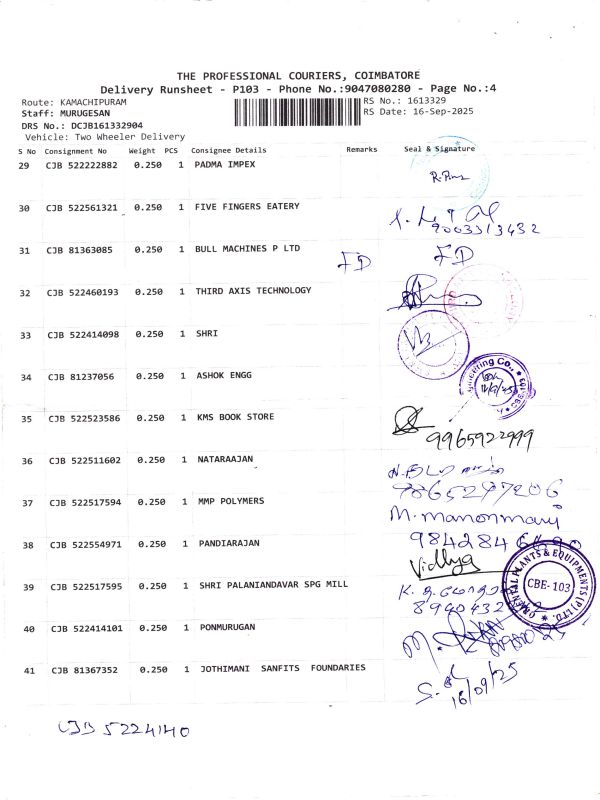 THE PROFESSIONAL COURIERS, COIMBATORE
Delivery Runsheet - P103 - Phone No.:9047080280 - Page No.:4
Route: KAMACHIPURAM RS No.: 1613329
Staff: MURUGESAN RS Date: 16-Sep-2025
DRS No.: DCJB161332904
Vehicle: Two Wheeler Delivery
S No Consignment No Weight PCS Consignee Details Remarks Seal & Signature
29 CJB 522222882 0.250 1 PADMA IMPEX
30 CJB 522561321 0.250 1 FIVE FINGERS EATERY
9003313432
31 CJB 81363085 0.250 1 BULL MACHINES P LTD FD FD
32 CJB 522460193 0.250 1 THIRD AXIS TECHNOLOGY
33 CJB 522414098 0.250 1 SHRI
34 CJB 81237056 0.250 1 ASHOK ENGG
35 CJB 522523586 0.250 1 KMS BOOK STORE
9965922999
36 CJB 522511602 0.250 1 NATARAAJAN
9865297206
37 CJB 522517594 0.250 1 MMP POLYMERS
M. manonmani
38 CJB 522554971 0.250 1 PANDIARAJAN
Vidhya
39 CJB 522517595 0.250 1 SHRI PALANIANDAVAR SPG MILL
CBE-103
40 CJB 522414101 0.250 1 PONMURUGAN
41 CJB 81367352 0.250 1 JOTHIMANI SANFITS FOUNDARIES
16/09/25
CJB 5224140